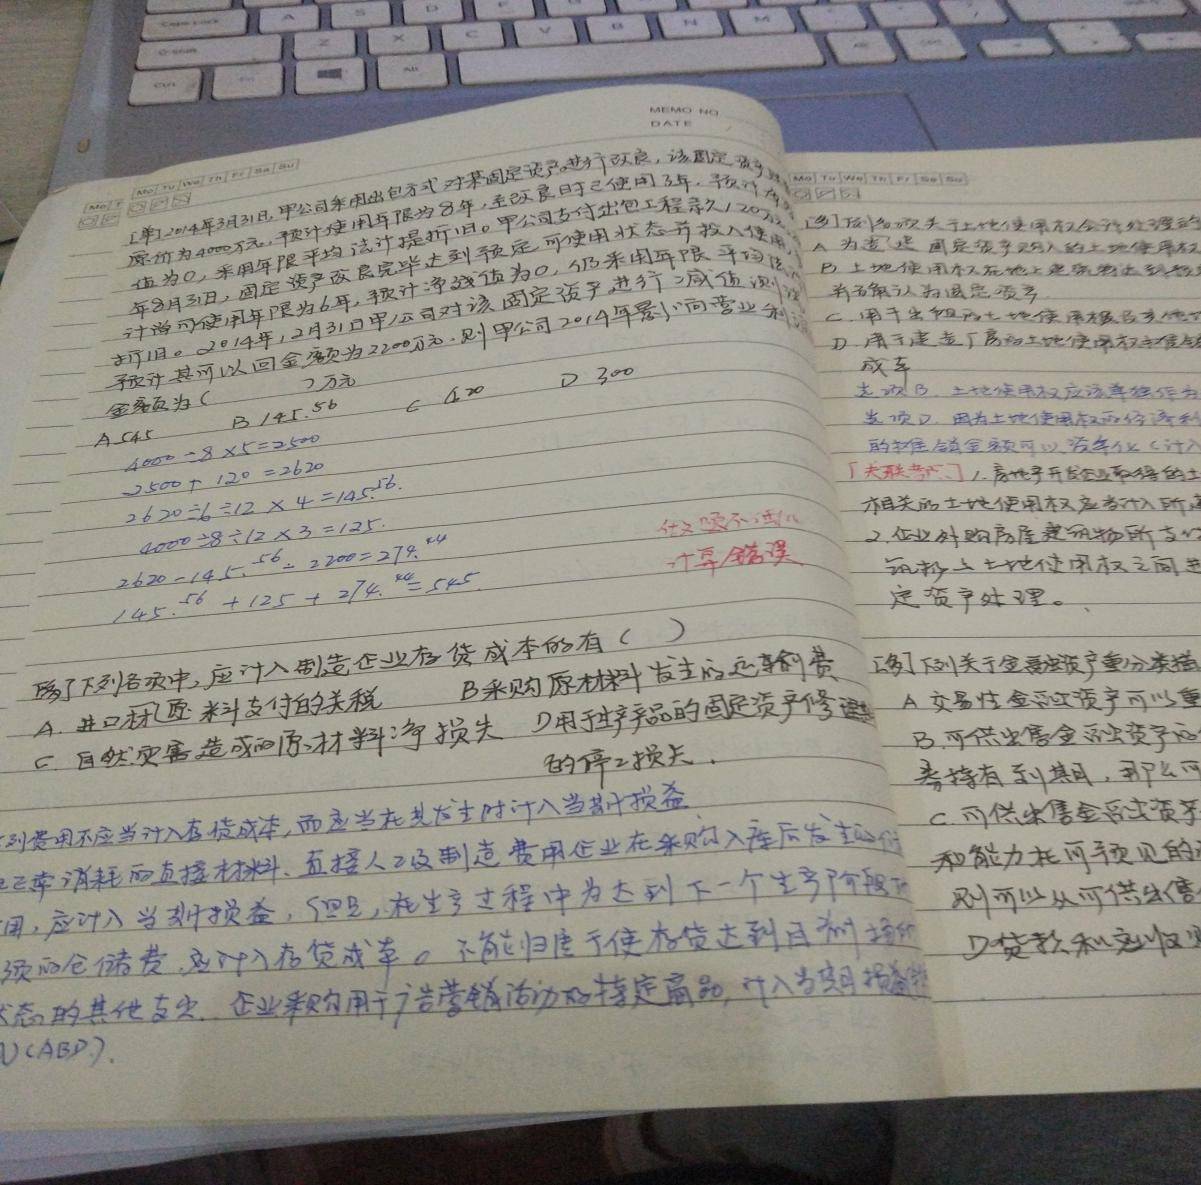 MEMO NO
DATE
Mo Tu We Th Fr Sa Su
[单]2014年3月31日,甲公司采用出包方式对某固定资产进行改良,该固定资产
原价为4000万元,预计使用年限为8年,至改良时已使用3年,预计
值为0,采用年限平均法计提折旧。甲公司支付出包工程款120万
年8月31日,固定资产改良完毕达到预定可使用状态并投入使用,
计尚可使用年限为6年,预计净残值为0,仍采用年限平均法
折旧。2014年12月31日甲公司对该固定资产进行减值测试
预计其可以回金额为2200万元.则甲公司2014年影响营业利润
金额为( )万元
A 545 B 145.56 C 420 D 300
4000÷8×5=2500
2500+120=2620
2620÷6÷12×4=145.56.
4000÷8÷12×3=125.
2620-145.56-2200=274.44
145.56+125+274.44=545.
计算错误
下列各项中,应计入制造企业存货成本的有( )
A. 进口原料支付的关税 B采购原材料发生的运输费
C. 自然灾害造成的原材料净损失 D用于生产产品的固定资产修理
的停工损失.
列费用不应当计入存货成本,而应当在其发生时计入当期损益
消耗的直接材料、直接人工及制造费用企业在采购入库后发生的
用,应计入当期损益,但是,在生产过程中为达到下一个生产阶段
须的仓储费应计入存货成本。不能归属于使存货达到目前场所
状态的其他支出.企业采购用于广告营销活动的特定商品,计入当期损益
(ABD).
Mo Tu We Th Fr Sa Su
[多]下列各项关于土地使用权会计处理的
A 为建造固定资产购入的土地使用权
B 土地使用权在地上建筑物达到预定
并确认为固定资产
C. 用于出租的土地使用权
D. 用于建造厂房的土地使用权摊销
成本
选项B. 土地使用权应该单独作为
选项D. 因为土地使用权的经济利
的摊销金额可以资本化(计入
[关联考点] 1. 房地产开发企业取得的土
相关的土地使用权应当计入所
2.企业外购房屋建筑物所支付
筑物与土地使用权之间进
定资产处理。
[多]下列关于金融资产重分类描
A 交易性金融资产可以重
B. 可供出售金融资产
持有到期,那么可
C. 可供出售金融资产
和能力在可预见的
则可以从可供出售
D 贷款和应收